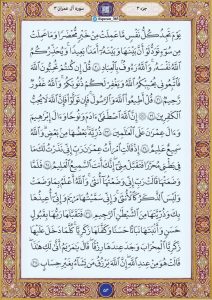 جزء ۳
سوره آل عمران ۳
يَوْمَ تَجِدُ كُلُّ نَفْسٍ مَّا عَمِلَتْ مِنْ خَيْرٍ مُّحْضَرًا وَمَا عَمِلَتْ
مِن سُوٓءٍ تَوَدُّ لَوْ أَنَّ بَيْنَهَا وَبَيْنَهُۥٓ أَمَدًۢا بَعِيدًا ۗ وَيُحَذِّرُكُمُ
ٱللَّهُ نَفْسَهُۥ ۗ وَٱللَّهُ رَءُوفٌۢ بِٱلْعِبَادِ ﴿٣٠﴾ قُلْ إِن كُنتُمْ تُحِبُّونَ ٱللَّهَ
فَٱتَّبِعُونِى يُحْبِبْكُمُ ٱللَّهُ وَيَغْفِرْ لَكُمْ ذُنُوبَكُمْ ۗ وَٱللَّهُ غَفُورٌ
رَّحِيمٌ ﴿٣١﴾ قُلْ أَطِيعُوا۟ ٱللَّهَ وَٱلرَّسُولَ ۖ فَإِن تَوَلَّوْا۟ فَإِنَّ ٱللَّهَ لَا يُحِبُّ
ٱلْكَٰفِرِينَ ﴿٣٢﴾ ۞ إِنَّ ٱللَّهَ ٱصْطَفَىٰٓ ءَادَمَ وَنُوحًا وَءَالَ إِبْرَٰهِيمَ
وَءَالَ عِمْرَٰنَ عَلَى ٱلْعَٰلَمِينَ ﴿٣٣﴾ ذُرِّيَّةًۢ بَعْضُهَا مِنۢ بَعْضٍ ۗ وَٱللَّهُ
سَمِيعٌ عَلِيمٌ ﴿٣٤﴾ إِذْ قَالَتِ ٱمْرَأَتُ عِمْرَٰنَ رَبِّ إِنِّى نَذَرْتُ لَكَ مَا
فِى بَطْنِى مُحَرَّرًا فَتَقَبَّلْ مِنِّىٓ ۖ إِنَّكَ أَنتَ ٱلسَّمِيعُ ٱلْعَلِيمُ ﴿٣٥﴾ فَلَمَّا
وَضَعَتْهَا قَالَتْ رَبِّ إِنِّى وَضَعْتُهَآ أُنثَىٰ وَٱللَّهُ أَعْلَمُ بِمَا وَضَعَتْ
وَلَيْسَ ٱلذَّكَرُ كَٱلْأُنثَىٰ ۖ وَإِنِّى سَمَّيْتُهَا مَرْيَمَ وَإِنِّىٓ أُعِيذُهَا
بِكَ وَذُرِّيَّتَهَا مِنَ ٱلشَّيْطَٰنِ ٱلرَّجِيمِ ﴿٣٦﴾ فَتَقَبَّلَهَا رَبُّهَا بِقَبُولٍ
حَسَنٍ وَأَنۢبَتَهَا نَبَاتًا حَسَنًا وَكَفَّلَهَا زَكَرِيَّا ۖ كُلَّمَا دَخَلَ عَلَيْهَا
زَكَرِيَّا ٱلْمِحْرَابَ وَجَدَ عِندَهَا رِزْقًا ۖ قَالَ يَٰمَرْيَمُ أَنَّىٰ لَكِ هَٰذَا ۖ
قَالَتْ هُوَ مِنْ عِندِ ٱللَّهِ ۖ إِنَّ ٱللَّهَ يَرْزُقُ مَن يَشَآءُ بِغَيْرِ حِسَابٍ ﴿٣٧﴾
۵۴